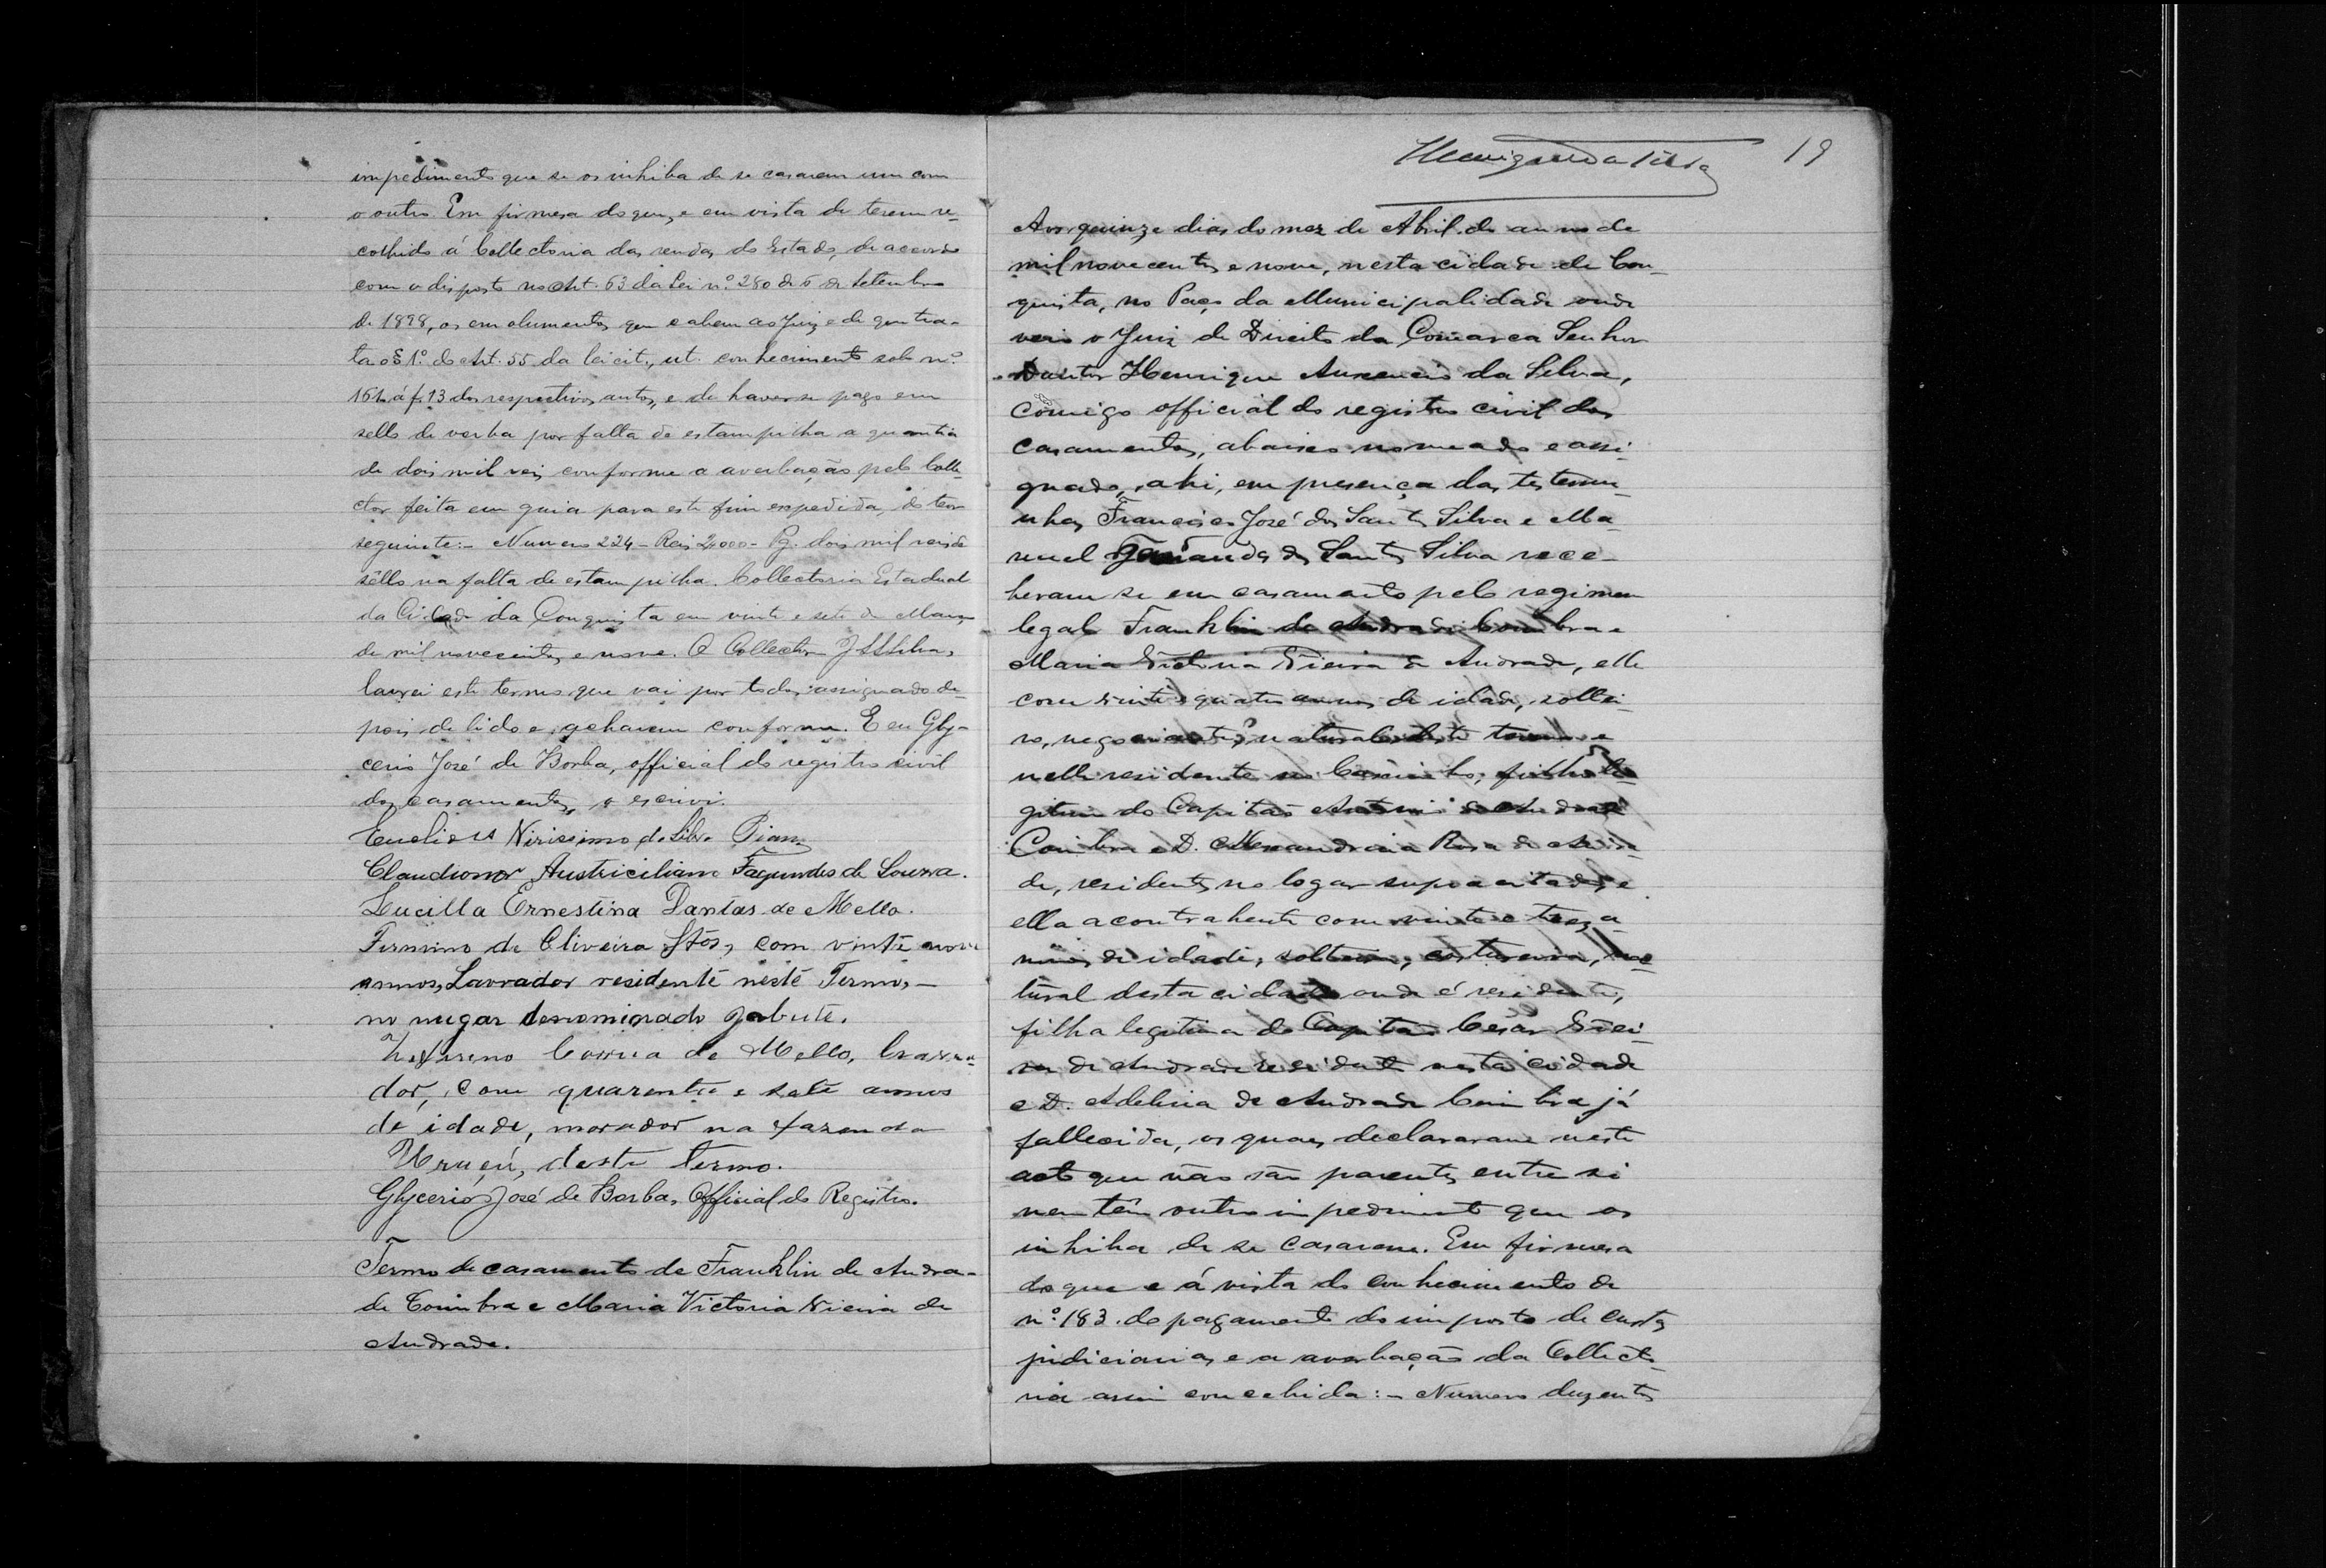 impedimento que se os inhiba de se casarem um com
o outro Em firmesa do que, e em vista de terem re-
colhido á Collectoria das rendas do Estado, de accordo
com o disposto no Art. 63 da Lei nº 280 de 6 de Setembro
de 1898, os emolumentos que cabem ao Juiz e de que tra-
ta o § 1º do Art. 55 da lei cit., ut. conhecimento sob nº
161 á f. 13 dos respectivos autos, e de haver se pago em
sello de verba por falta de estampilha a quantia
de dois mil reis conforme a averbação pelo Colle-
ctor feita em guia para este fim expedida, do teor
seguinte:- Numero 224 - Reis 2,000 - Pg. dois mil reis de
sêllo na falta de estampilha. Collectoria Estadual
da Cidade da Conquista em vinte e sete de Março
de mil novecentos e nove. O Collector
lavrei este termo que vai por todos assignado de-
pois de lido e acharem conforme. E eu Gly-
cerio José de Borba, official do registro civil
dos casamentos, o escrivi.
Euclides da Silva
Claudionor Austriciliano Fagundes de Souza.
Lucilla Ernestina Dantas de Mello.
Firmino de Oliveira Stos, com vinte nove
annos, Lavrador residente neste Termo, -
no denominado Jabuté.
Correia de Mello, lavra-
dor, com quarenta e sete annos
de idade, morador na fazenda
Uruçú, deste termo.
Glycerio José de Borba, Official do Registro.
Termo de casamento de Franklin de Andra-
de Coimbra e Maria Victoria Vieira de
Andrade.
19
Aos quinze dias do mez de Abril do anno de
mil novecentos e nove, nesta cidade de Con-
quista, no Paço da Municipalidade onde
veio o Juiz de Direito da Comarca Senhor
Doutor Henrique Auxencio da Silva,
comigo official do registro civil dos
casamentos, abaixo nomeado e assi-
gnado, ahi, em presença das testemu-
nhas, Francisco José dos Santos Silva e Ma-
noel dos Santos Silva rece-
beram se em casamento pelo regimen
legal Franklin de Andrade Coimbra e
Maria Victoria Vieira de Andrade, elle
com vinte e quatro annos de idade, soltei-
ro, negociante, natural deste termo e
nelle residente no filho le-
gitimo do Capitão Antonio de Andrade
Coimbra e D. Alexandrina Rosa de
de, residentes no logar supra citado, e
ella a contrahente com vinte e tres a-
nnos de idade, solteira, costureira, na-
tural desta cidade onde é residente,
filha legitima do Capitão Cesar Viei-
ra de Andrade residente nesta cidade
e D. Adelina de Andrade Coimbra já
fallecida, os quaes declararam neste
acto que não são parentes entre si
nem têm outro impedimento que os
inhiba de se casarem. Em firmesa
do que e á vista do conhecimento de
nº 183. do pagamento do imposto de custas
judiciarias, e a averbação da Collecto-
ria assim concebida:- Numero duzentos